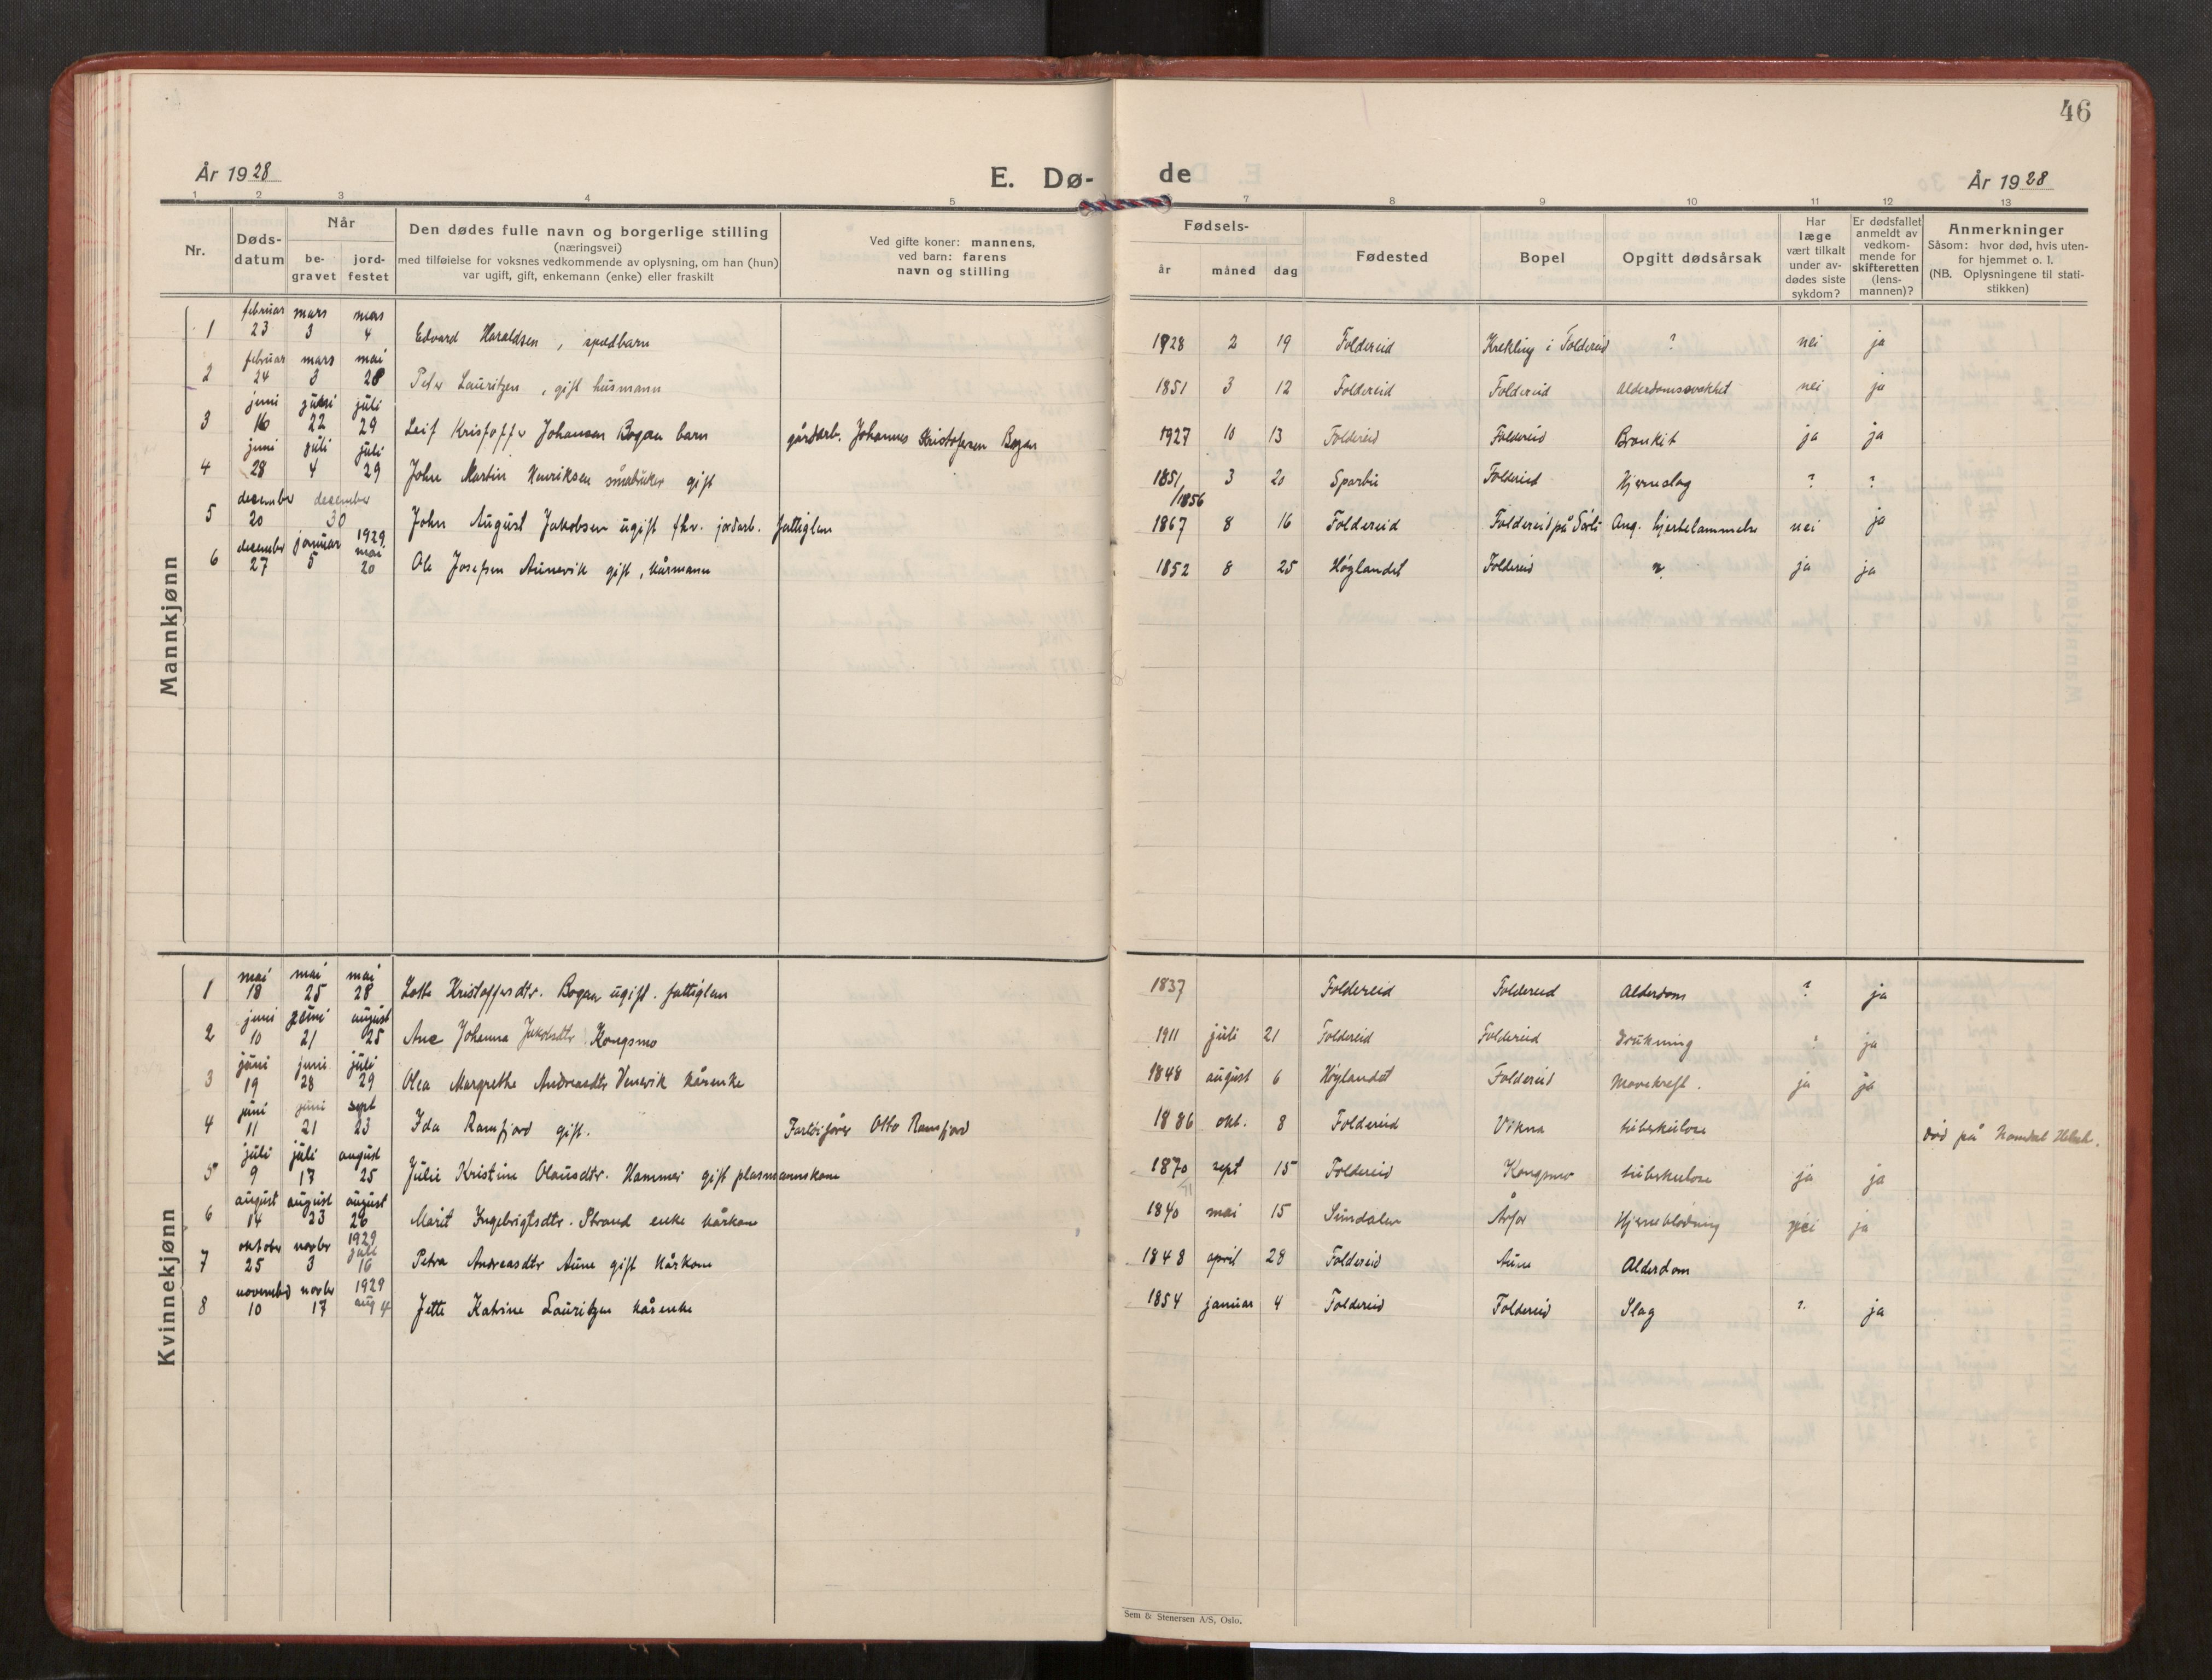 46
År 1928
E. Dø-
de
År 1928
1 2 3 4 5 7 8 9 10 11 12 13
Nr.
Døds-
datum
Når
be-
gravet
jord-
festet
Den dødes fulle navn og borgerlige stilling
(næringsvei)
med tilføielse for voksnes vedkommende av oplysning, om han (hun)
var ugift, gift, enkemann (enke) eller fraskilt
Ved gifte koner: mannens,
ved barn: farens
navn og stilling
Fødsels-
år måned dag
Fødested
Bopel
Opgitt dødsårsak
Har
læge
vært tilkalt
under av-
dødes siste
sykdom?
Er dødsfallet
anmeldt av
vedkom-
mende for
skifteretten
(lens-
mannen)?
Anmerkninger
Såsom: hvor død, hvis uten-
for hjemmet o. l.
(NB. Oplysningene til stati-
stikken)
Mannkjønn
februar mars mars
1 23 3 4 Edvard Haraldsen, spedbarn 1928 2 19 Foldereid Krekling i Foldereid ? nei ja
februar mars mai
2 24 3 28 Peter Lauritzen, gift husmann 1851 3 12 Foldereid Foldereid Alderdomssvakhet nei ja
juni juni juli
3 16 22 29 Leif Kristoffer Johansen Bogan barn gårdarb. Johannes Kristofersen Bogan 1927 10 13 Foldereid Foldereid Bronkit ja ja
juni juli juli
4 28 4 29 John Martin Henriksen småbruker gift 1851/1856 3 20 Sparbu Foldereid Hjerneslag ? ?
desember desember
5 20 30 John August Jakobsen ugift fhv. jordarb. fattiglem 1867 8 16 Foldereid Foldereid på Sørli Ang. hjertelammelse nei ja
desember januar 1929 mai
6 27 5 20 Ole Josefsen Aunevik gift, kårmann 1852 8 25 Høylandet Foldereid ? ja ja
Kvinnekjønn
mai mai mai
1 18 25 28 Lotte Kristoffersdtr. Bogan ugift. fattiglem 1837 Foldereid Foldereid Alderdom ? ja
juni juni august
2 10 21 25 Ane Johanna Jakobsdtr. Kongsmo 1911 juli 21 Foldereid Foldereid Drukning ja
juni juni juli
3 19 28 29 Olea Margrethe Andreasdtr Venevik kårenke 1848 august 6 Høylandet Foldereid Mavekreft. ja ja
juni juni sept
4 11 21 23 Ida Ramfjord gift. Fartøifører Otto Ramfjord 1886 okt. 8 Foldereid Vikna tuberkulose død på Namdal
juli juli august
5 9 17 25 Julie Kristine Olausdtr. Hammer gift plasmannskone 1870 sept 15 Foldereid Kongsmo tuberkulose ja ja
august august august
6 14 23 26 Marit Ingebrigtsdtr. Strand enke kårkone 1840 mai 15 Sundalen Årfor Hjerneblødning nei ja
oktober novbr 1929 juli
7 25 3 16 Petra Andreasdtr Aune gift kårkone 1848 april 28 Foldereid Aune Alderdom
november novbr 1929
8 10 17 aug 4 Jette Katrine Lauritzen kårenke 1854 januar 4 Foldereid Foldereid Slag ? ja
Sem & Stenersen A/S, Oslo.